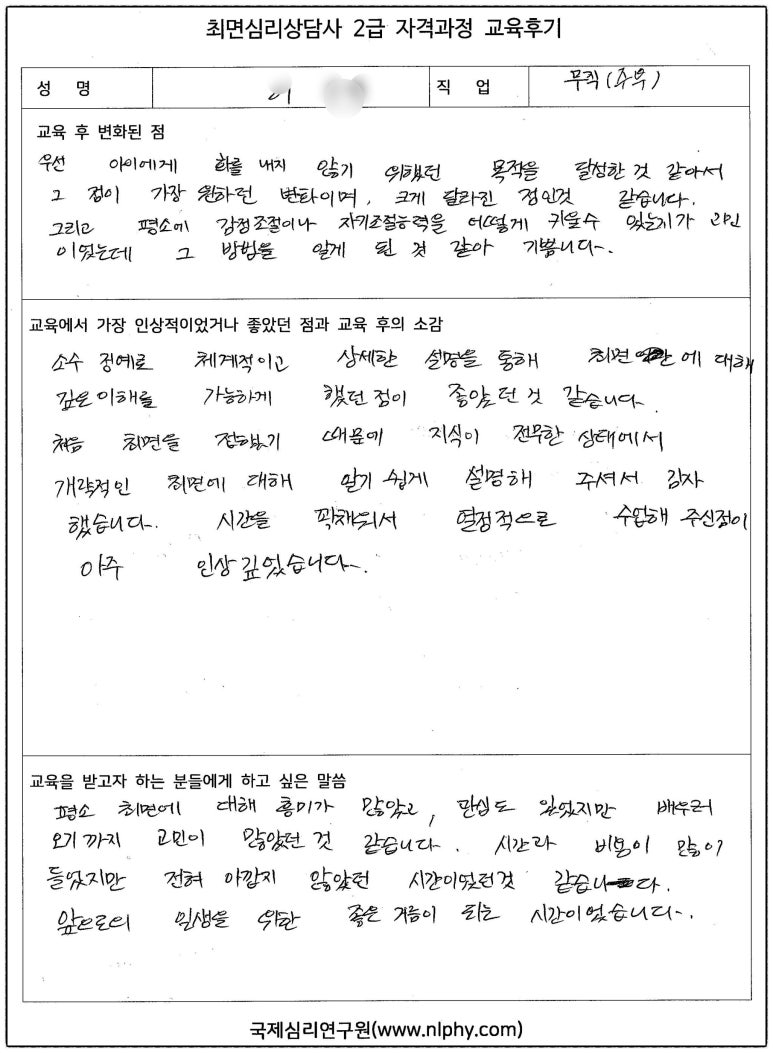 최면심리상담사 2급 자격과정 교육후기
성 명
직 업 무직(주부)
교육 후 변화된 점
우선 아이에게 화를 내지 않기 위했던 목적을 달성한 것 같아서
그 점이 가장 원하던 변화이며, 크게 달라진 점인것 같습니다.
그리고 평소에 감정조절이나 자기조절능력을 어떻게 키울수 있는지가 고민
이었는데 그 방법을 알게 된 것 같아 기쁩니다.
교육에서 가장 인상적이었거나 좋았던 점과 교육 후의 소감
소수 정예로 체계적이고 상세한 설명을 통해 최면 에 대해
깊은 이해를 가능하게 했던 점이 좋았던 것 같습니다.
처음 최면을 접했기 때문에 지식이 전무한 상태에서
개략적인 최면에 대해 알기 쉽게 설명해 주셔서 감사
했습니다. 시간을 꽉채워서 열정적으로 수업해 주신점이
아주 인상 깊었습니다.
교육을 받고자 하는 분들에게 하고 싶은 말씀
평소 최면에 대해 흥미가 많았고, 관심도 있었지만 배우러
오기까지 고민이 많았던 것 같습니다. 시간과 비용이 많이
들었지만 전혀 아깝지 않았던 시간이었던것 같습니다.
앞으로의 인생을 위한 좋은 거름이 되는 시간이었습니다.
국제심리연구원(www.nlphy.com)